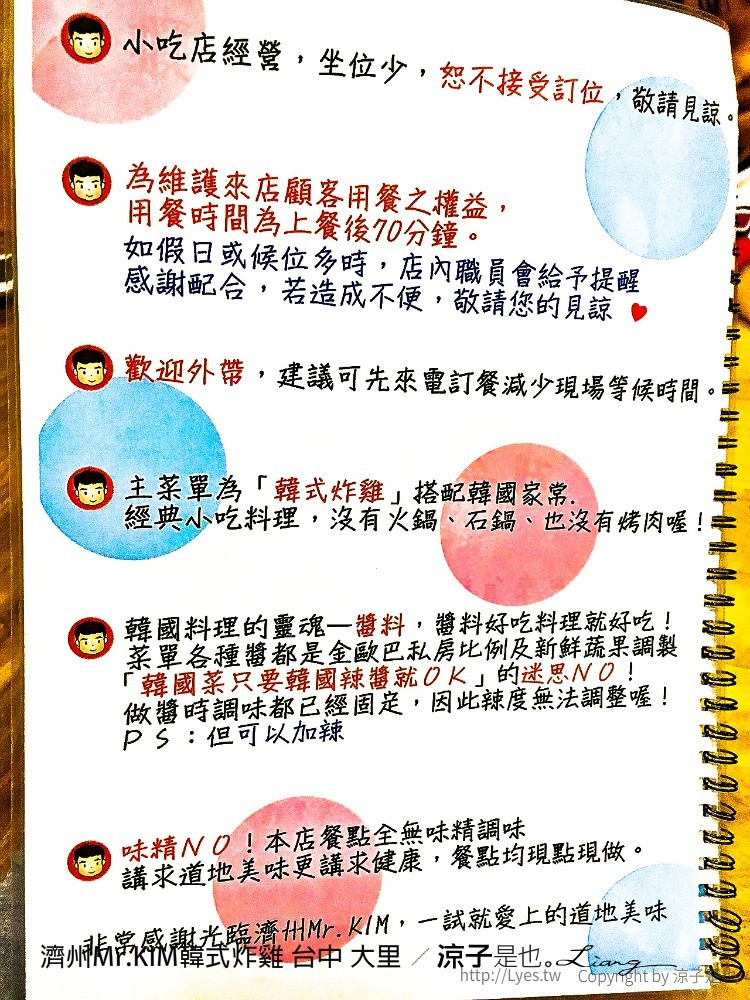 小吃店經營，坐位少，恕不接受訂位，敬請見諒。
為維護來店顧客用餐之權益，
用餐時間為上餐後70分鐘。
如假日或候位多時，店內職員會給予提醒
感謝配合，若造成不便，敬請您的見諒
歡迎外帶，建議可先來電訂餐減少現場等候時間。
主菜單為「韓式炸雞」搭配韓國家常.
經典小吃料理，沒有火鍋、石鍋、也沒有烤肉喔！
韓國料理的靈魂—醬料，醬料好吃料理就好吃！
菜單各種醬都是金歐巴私房比例及新鮮蔬果調製
「韓國菜只要韓國辣醬就OK」的迷思NO！
做醬時調味都已經固定，因此辣度無法調整喔！
PS：但可以加辣
味精NO！本店餐點全無味精調味
講求道地美味更講求健康，餐點均現點現做。
非常感謝光臨濟州Mr.KIM，一試就愛上的道地美味
濟州Mr.KIM韓式炸雞 台中 大里 ／涼子是也。Liang
http://Lyes.tw Copyright by 涼子是也